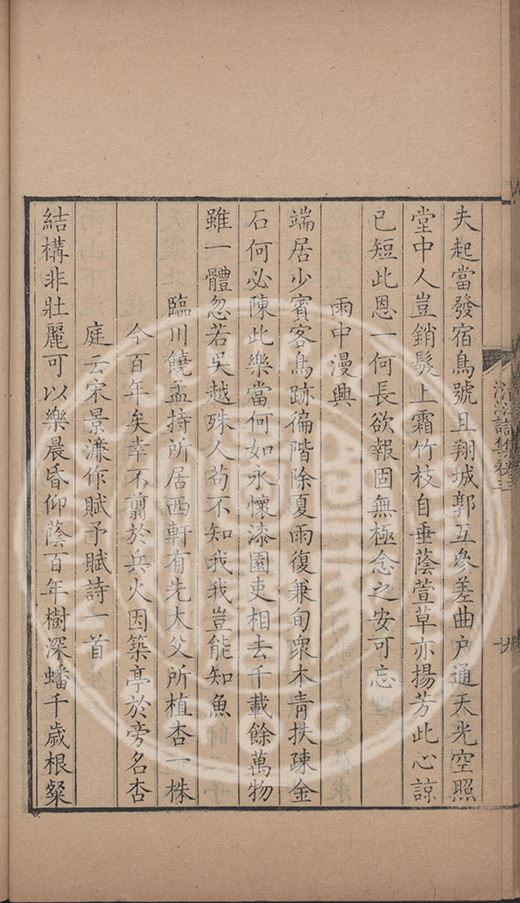 夫起當發宿鳥號且翔城郭互參差曲户通天光空照
堂中人豈銷髮上霜竹枝自垂蔭萱草亦揚芳此心諒
已短此恩一何長欲報固無極念之安可忘
雨中漫興
端居少賓客鳥跡徧階除夏雨復兼旬衆木青扶疎金
石何必陳此樂當何如永懷漆園吏相去千載餘萬物
雖一體忽若吳越殊人苟不知我我豈能知魚
臨川饒孟持所居西軒有先大父所植杏一株
今百年矣幸不翦於兵火因築亭於旁名杏
庭云宋景濂作賦予賦詩一首
結構非壯麗可以樂晨昏仰蔭百年樹深蟠千歲根粲